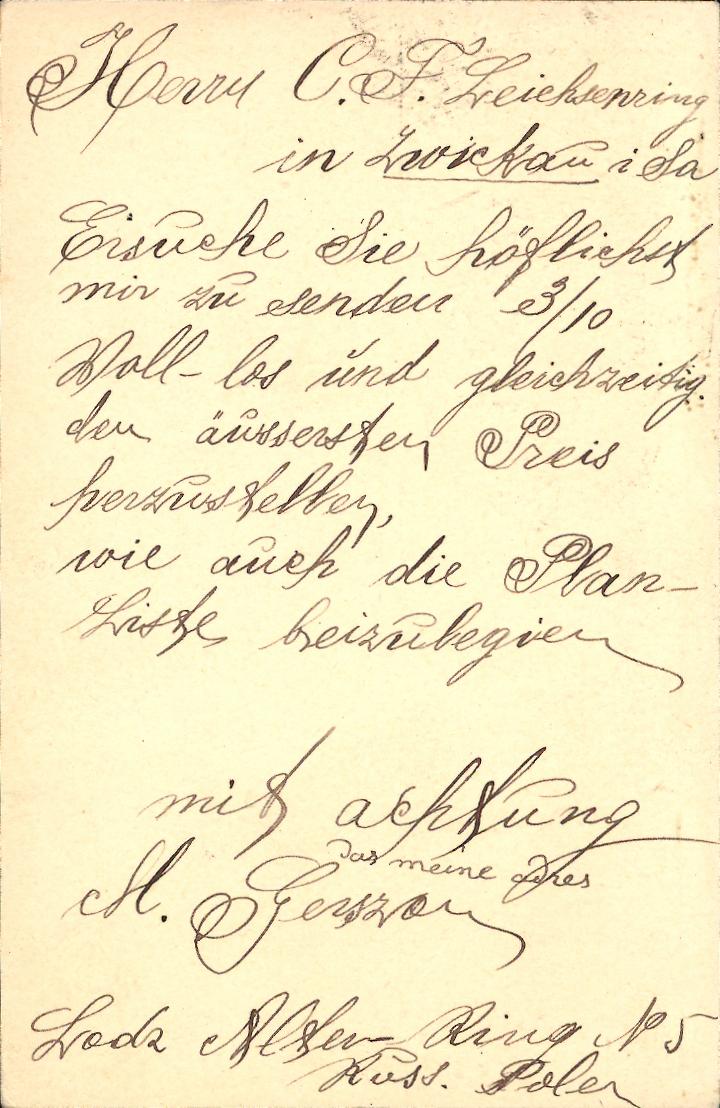 Herrn C. F. Leichsenring
in Zwickau i Sa
Ersuche Sie höflichst
mir zu senden 3/10
Voll-los und gleichzeitig
den äussersten Preis
herzustellen,
wie auch die Plan-
Liste beizulegien
mit achtung
das meine adres
M. Gerszon
Lodz Alter Ring № 5
Russ. Polen